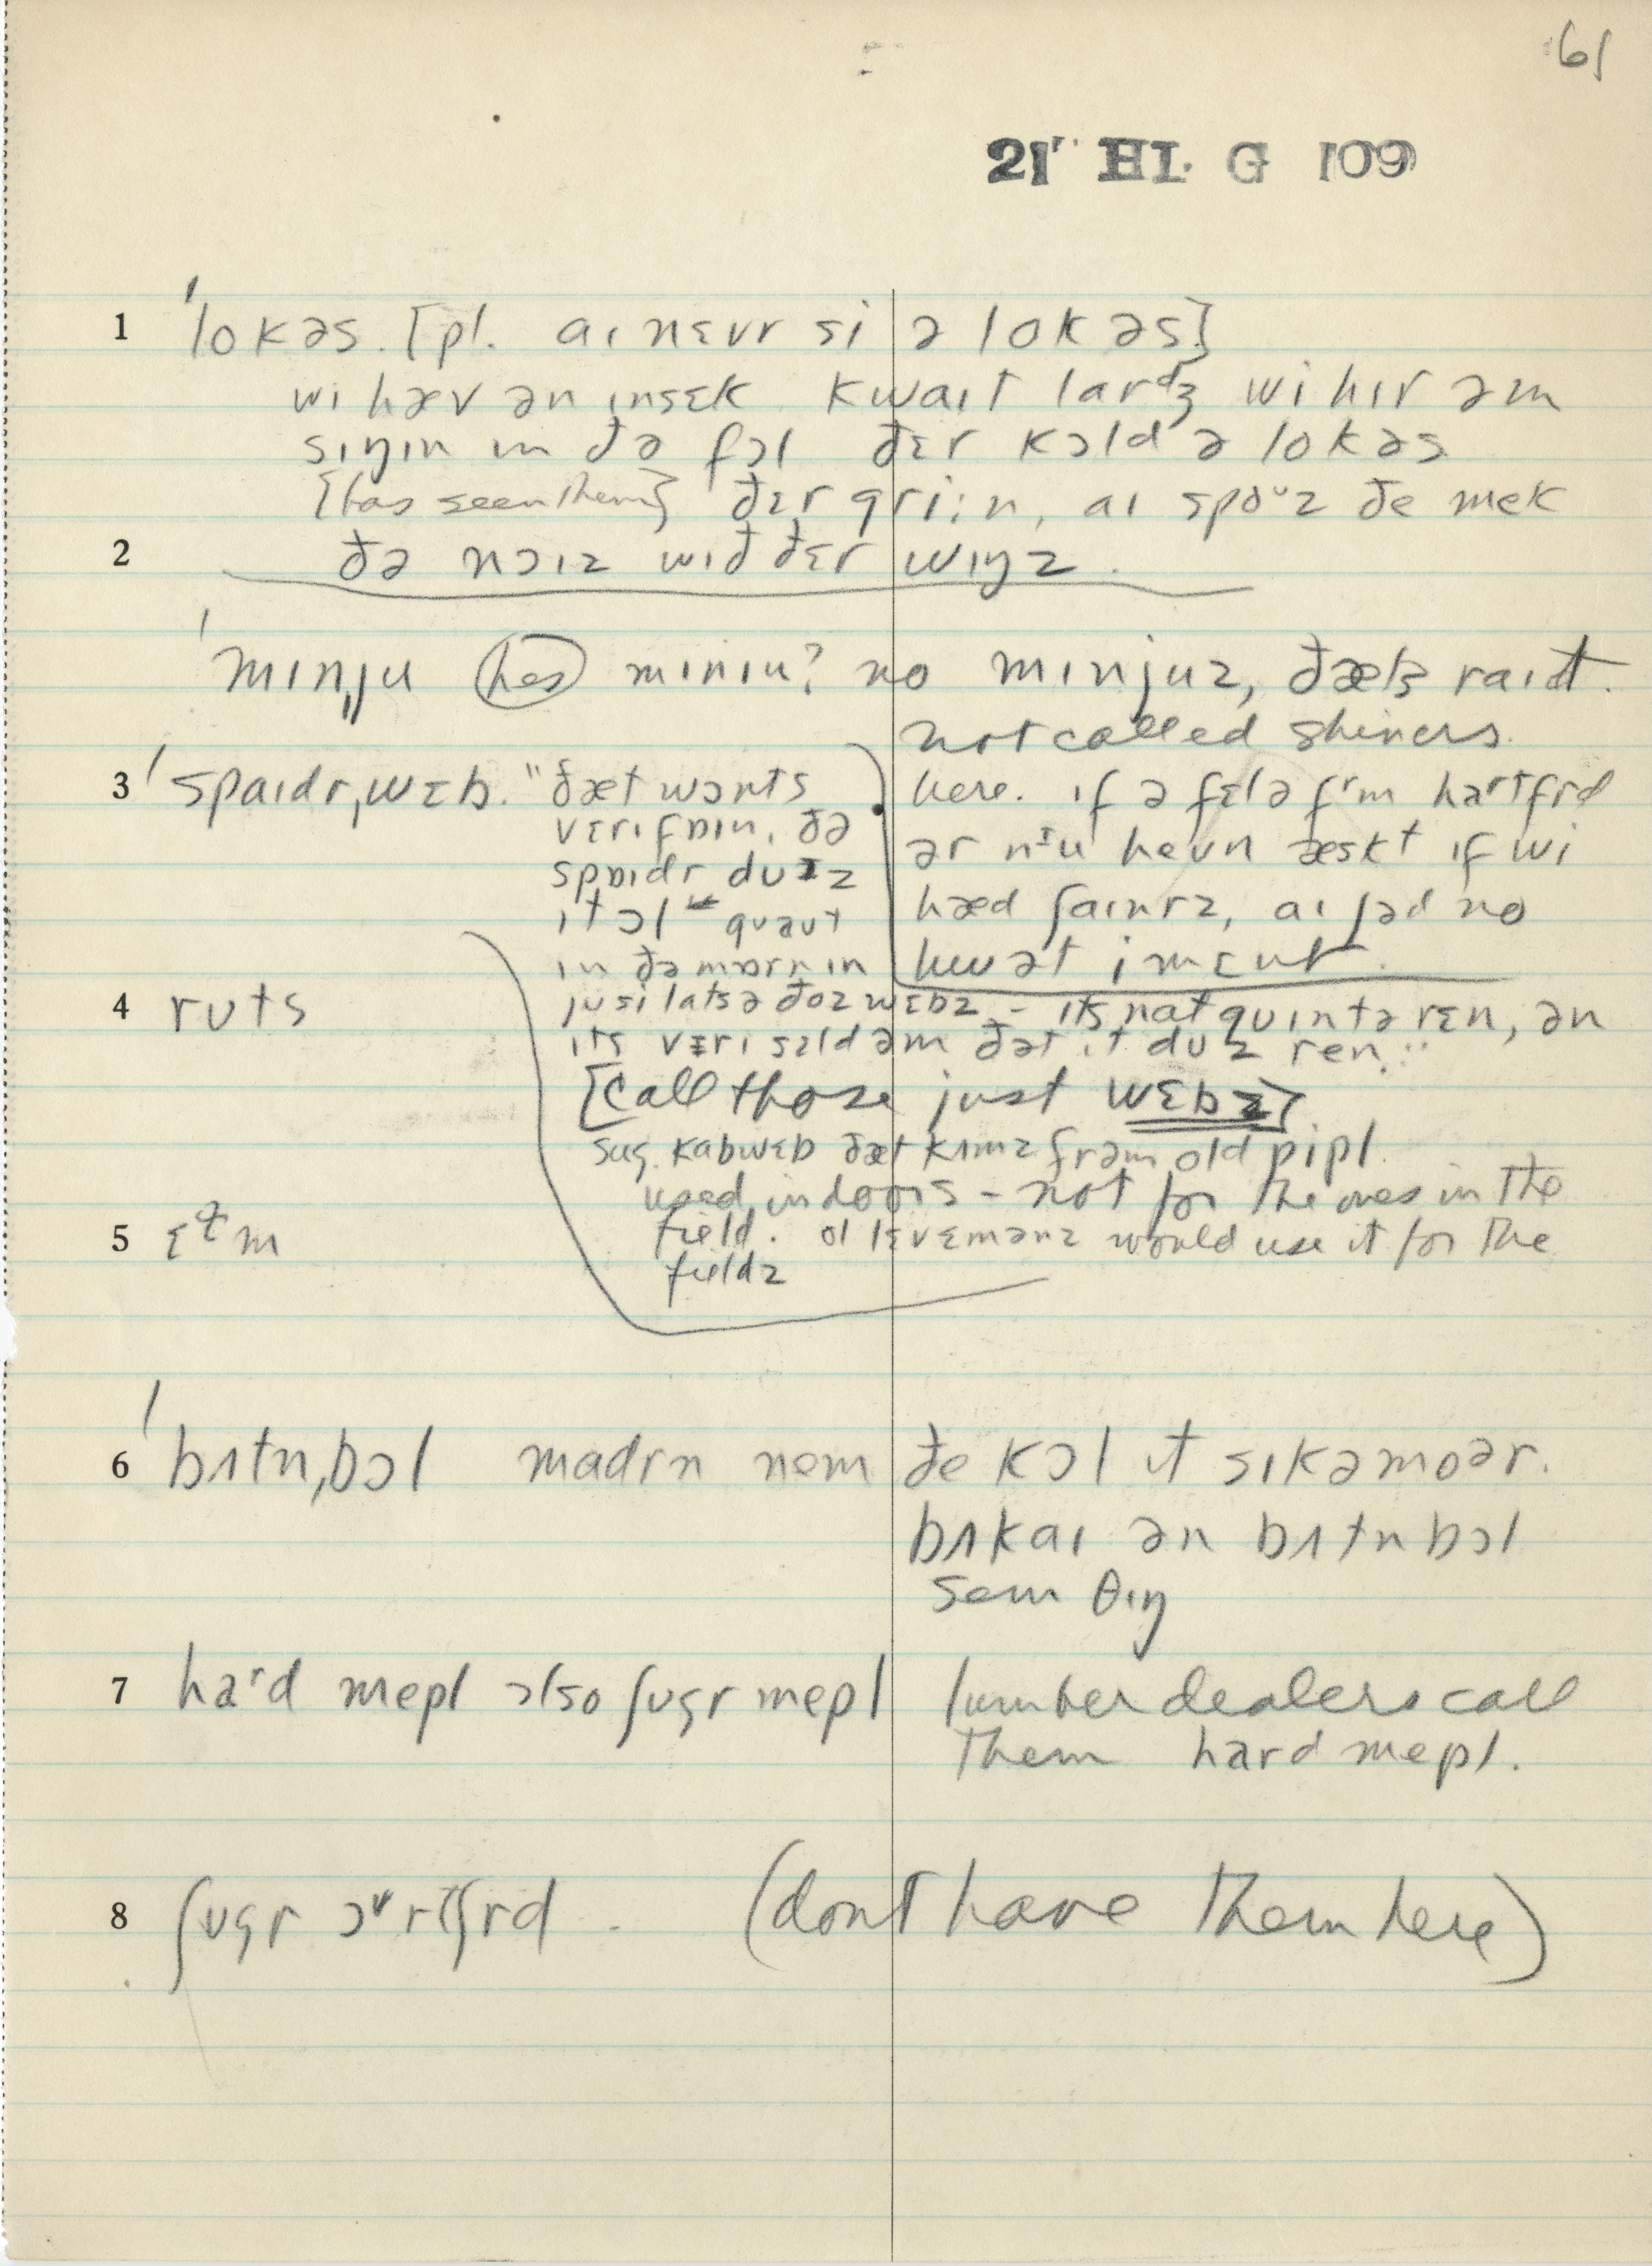 61
21 HL G 109
1 ˈlokəs. [pl. aɪ nɛvr si ə lokəs]
wi hæv ən ɪnsɛk kwaɪt lardʒ wi hɪr əm
sɪŋɪn ɪn ðə fɔl ðɛr kɔld ə lokəs
[has seen them] ðɛr griːn, aɪ spoᶷz ðe mek
2 ðə nɔɪz wɪð ðɛr wɪŋz.
ˈmɪnˌju hes mɪnɪu? no mɪnjuz, ðæts raɪt.
not called shiners
3 ˈspaɪdrˌwɛb. "ðæt wɔnts
vɛrɪfɒɪn, ðə
spɒɪdr duɪz
ɪt ɔl gᴜəut
in ðə mɒrnɪn
here. ɪf ə fɛlə fʳm haʳtfrd
ər nᶦu hevn æskt ɪf wi
hæd ʃaɪnrz, aɪ ʃəd no
hwət i mɛnt.
4 ruts
ju si lats ə ðoz wɛbz – ɪts nat guɪn tə ren, ən
ɪts vɛrɪ sɛldəm ðət ɪt duz ren."
[call those just wɛbz]
sug. kabwɛb ðæt kʌmz frəm old pipl.
used indoors – not for the ones in the
field. ol lɛvɛmənz would use it for the
fieldz
5 ɛᵊm
6 ˈbʌtnˌbɔl madrn nem ðe kɔl ɪt sɪkəmoər.
bʌkaɪ ən bʌtnbɔl
sem θɪŋ
7 haʳd mepl ɔlso ʃugr mepl lumber dealers call
them hard mepl.
8 ʃugr ɔᵛrtʃrd. (dont have them here)